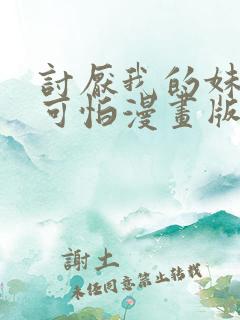 討厭我的妹
可怕漫畫版
謝土
未任同意禁止转载